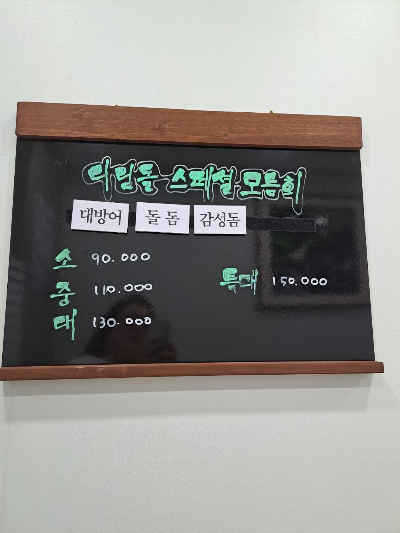 다믿돔 스페셜 모듬회
대방어 돌돔 감성돔
소 90.000
중 110.000 특대 150.000
대 130.000